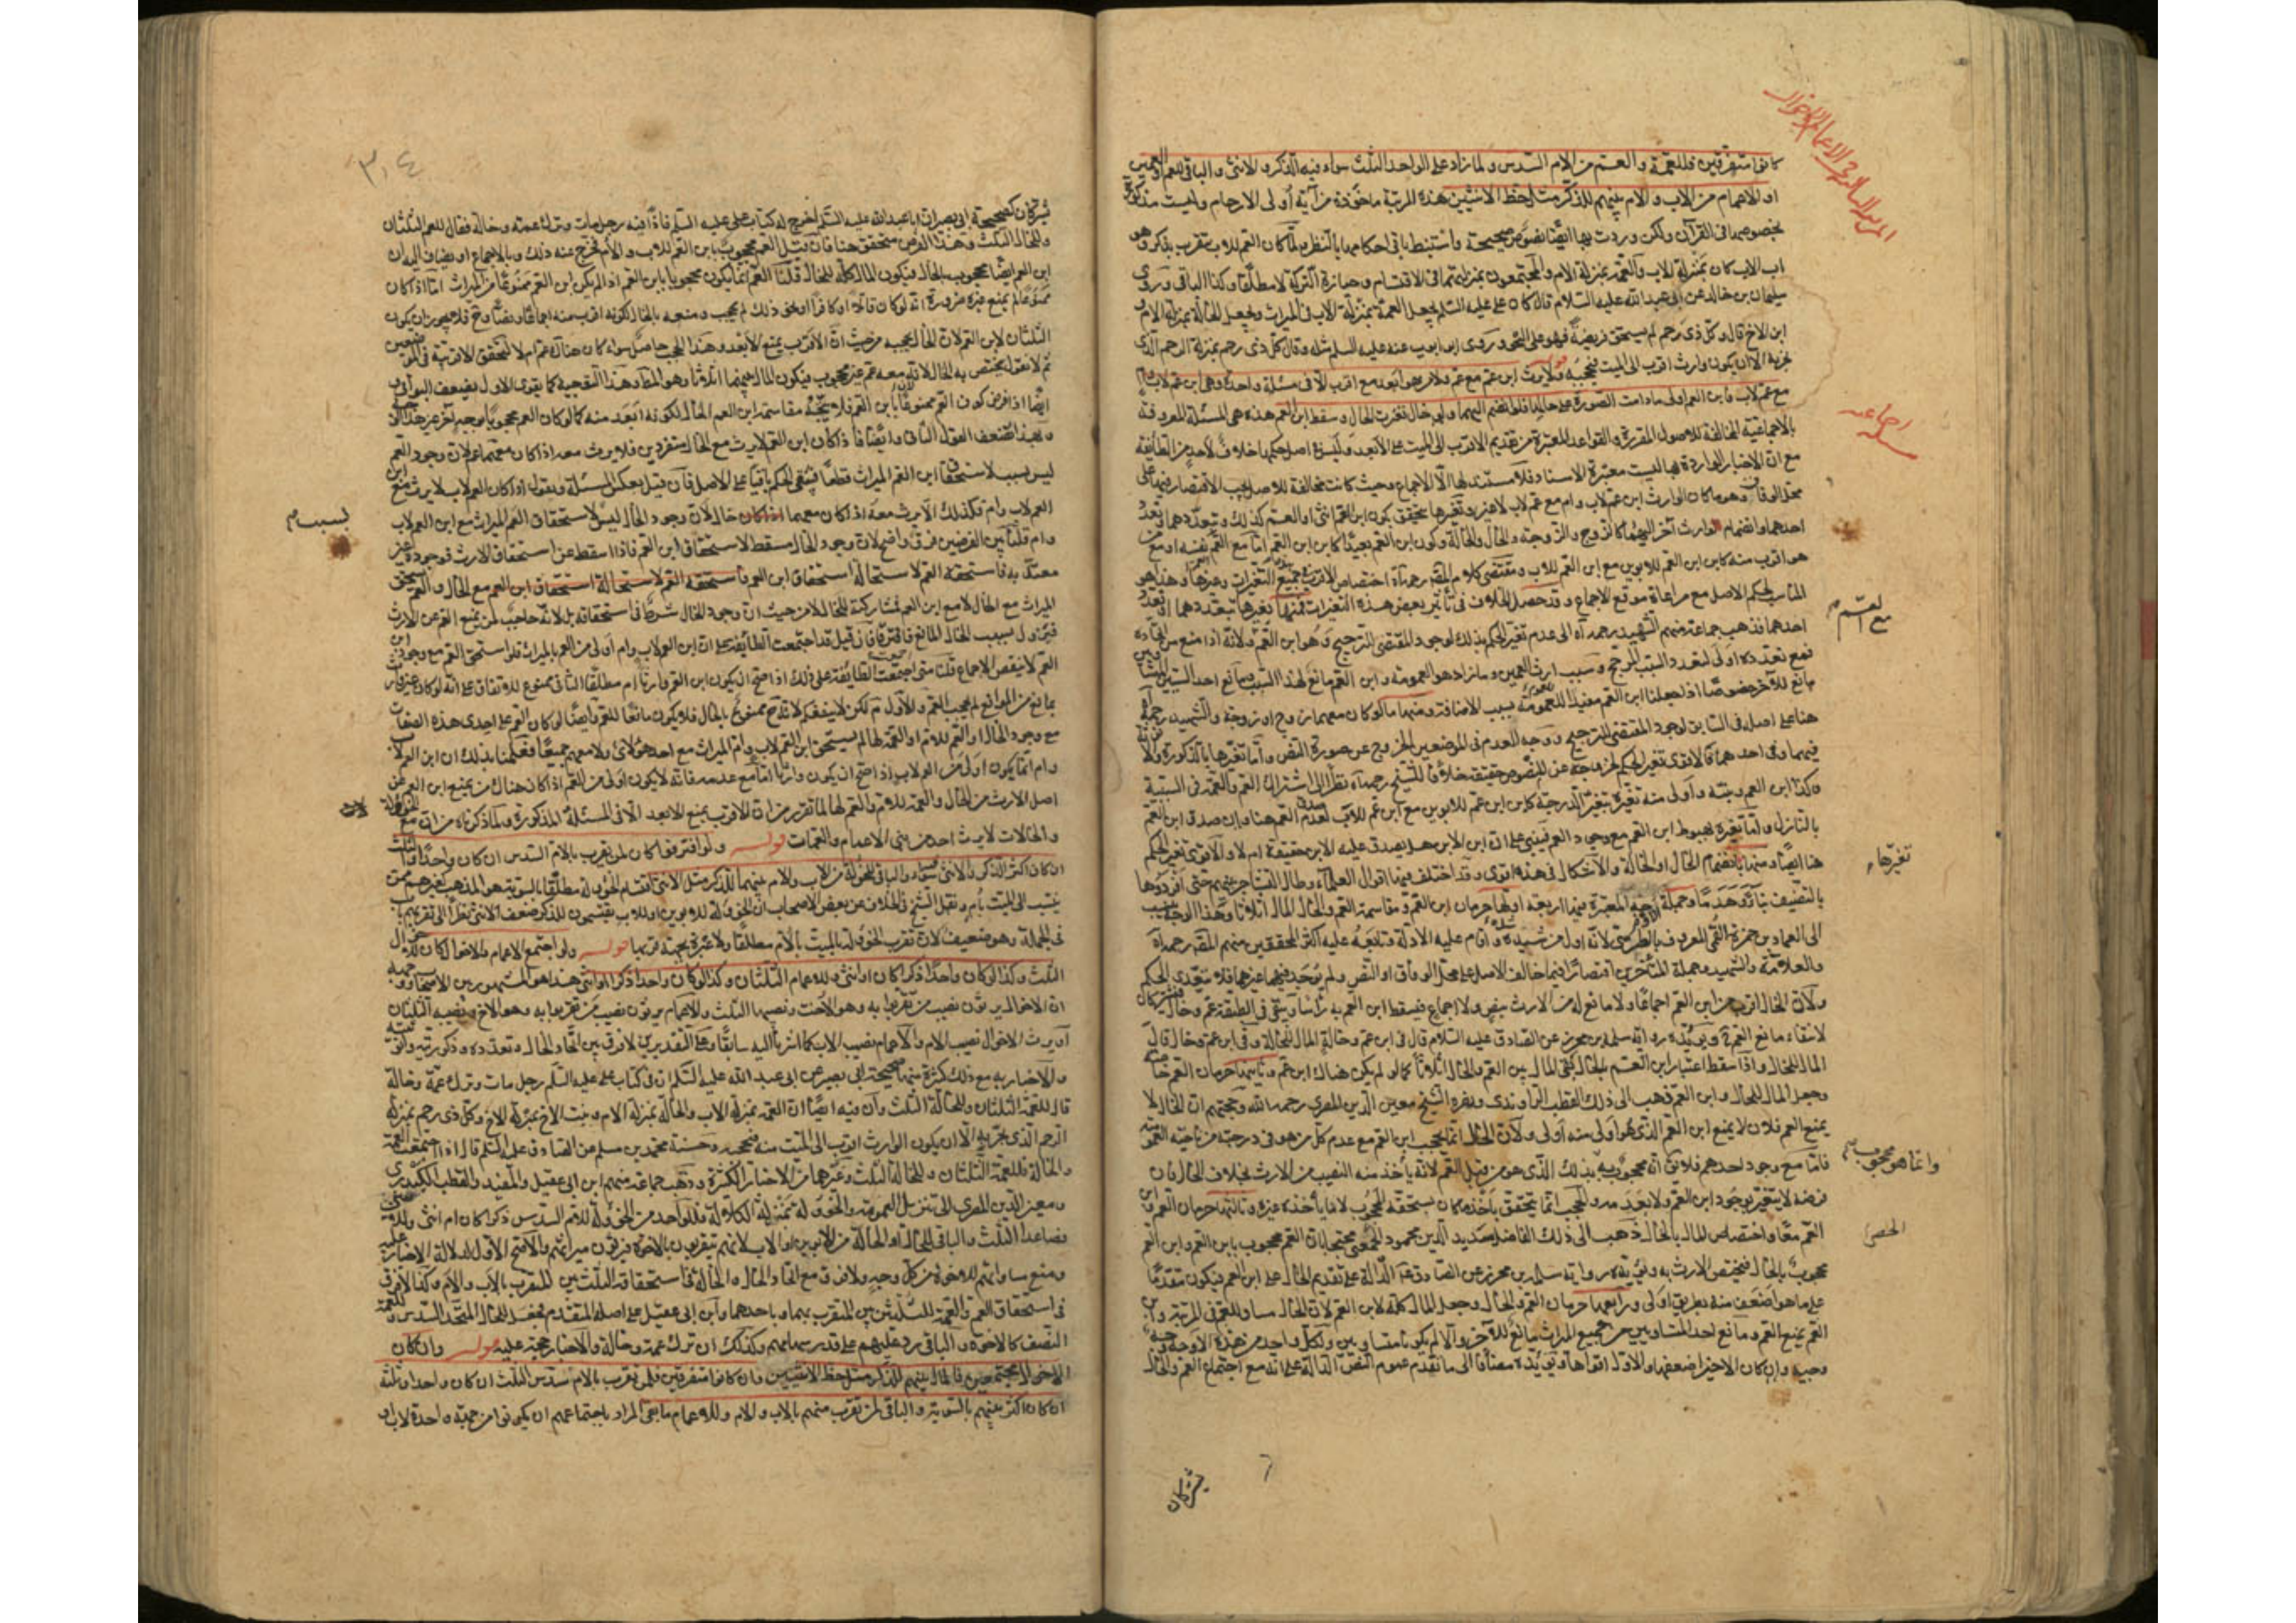 المرتبة الثالثة في الاعمام والاخوال
كانوا متفرقين فللعمة والعم من الام السدس ولما زاد على الواحد الثلث سواء فيه الذكر والانثى والباقي للعم او العمين
او للاعمام من الاب والام بينهم للذكر مثل حظ الانثيين هذه المرتبة ماخوذة من آية أولى الارحام وليست مذكورة
بخصوصها في القرآن ولكن وردت بها ايضا نصوص صحيحة واستنبط باقي احكامها بالنظر لما كان العم للاب يتقرب بذكر وهو
اب الاب كان بمنزلة الاب والعمة بمنزلة الام والمجتمعون بمنزلتهما في الاقتسام وحيازة التركة لا مطلقا وكذا الباقي وروى
سليمان بن خالد عن ابي عبد الله عليه السلام قال كان علي عليه السلم يجعل العمة بمنزلة الاب في الميراث ويجعل الخالة بمنزلة الام و
ابن الاخ قال وكل ذي رحم لم يستحق فريضة فهو على النحو وروى ابو ايوب عنه عليه السلم مثله وقال كل ذي رحم بمنزلة الرحم الذي
يجر به الا ان يكون وارث اقرب الى الميت فيحجبه قوله ولا يرث ابن عم مع عم ولا من هو ابعد مع اقرب الا في مسئلة واحدة وهي ابن عم لاب وام
مع عم لاب فابن العم اولى ما دامت الصورة على حالها فلو انضم اليهما ولو خال تغيرت الحال وسقط ابن العم هذه هي المسئلة المعروفة
بالاجماعية المخالفة للاصول المقررة والقواعد المعتبرة من تقديم الاقرب الى الميت على الابعد وليس في اصل حكمها خلاف لاحد من الطائفة
مع ان الاخبار الواردة بها ليست معتبرة الاسناد فلا مستند لها الا الاجماع وحيث كانت مخالفة للاصل يجب الاقتصار فيها على
محل الوفاق وهو ما كان الوارث ابن عم لاب وام مع عم لاب لا غير وتغيرها يتحقق بكون ابن العم انثى او العم كذلك وبتعددهما او تعدد
احدهما وانضمام وارث آخر اليهما كالزوج والزوجة والخال والخالة وكون ابن العم بعيدا كابن ابن العم اما مع العم نفسه او مع من
هو اقرب منه كابن ابن العم للابوين مع ابن العم للاب ومقتضى كلام المص رحمه الله اختصاص الارث بجميع التغيرات وغيرها وهذا هو
المناسب لحكم الاصل مع مراعاة موقع الاجماع وقد حصل الخلاف في تأثير بعض هذه التغيرات فمنها تغيرها بتعددهما او تعدد
احدهما فذهب جماعة منهم الشهيد رحمه الله الى عدم تغير الحكم بذلك لوجود المقتضي للترجيح وهو ابن العم ولانه اذا منع مع اتحاده
فمع تعدده اولى لتعدد السبب المرجح وسبب ارث العمين وما زاد هو العمومة وابن العم مانع لهذا السبب
هنا على اصله في السابق لوجود المقتضي للترجيح ووجه العدم في الموضعين الخروج عن صورة النص واما تغيرها بالذكورة والا
فيهما وفي احدهما فالاقوى تغير الحكم لخروجه عن المنصوص حقيقة خلافا للشيخ رحمه الله نظرا الى اشتراك العم والعمة في السببية
وكذا ابن العم وبنته وأولى منه تغيره بتغير الدرجة كابن ابن عم للابوين مع ابن عم للاب لعدم صدق العم هنا وان صدق ابن العم
بالنازل واما تغيره بهبوط ابن العم مع وجود العم فيبنى على ان ابن الابن هل يصدق عليه الابن حقيقة ام لا والاقوى تغير الحكم
هنا ايضا ومنها بانضمام الخال او الخالة والاشكال في هذه اقوى وقد اختلف فيها اقوال العلماء وطال التشاجر بينهم حتى افردوها
بالتصنيف بناء وهدما وجملة اوجه المعتبرة فيها اربعة اولها حرمان ابن العم ومقاسمة العم والخال المال اثلاثا وهذا الوجه ينسب
الى العماد بن حمزة القمي المعروف بالطوسي لانه اول من شيده واقام عليه الادلة وتبعه عليه اكثر المحققين منهم المص رحمه الله
والعلامة والشهيد وجملة المتأخرين اقتصارا فيما خالف الاصل على محل الوفاق او النص ولم يوجد فيما عداهما فلا يتعدى الحكم
ولان الخال اقرب من ابن العم اجماعا ولا مانع له من الارث بنص ولا اجماع فيسقط ابن العم به رأسا ويبقى في الطبقة عم وخال فيشتركان
لانتفاء مانع العم ح ويؤيده رواية سلمة بن محرز عن الصادق عليه السلام قال في ابن عم وخالة المال للخالة وفي ابن عم وخال قال
المال للخال واذا سقط اعتبار ابن العم بالخال بقي المال بين العم والخال اثلاثا كما لو لم يكن هناك ابن عم وثانيها حرمان العم خاصة
وجعل المال للخال وابن العم ذهب الى ذلك القطب الراوندي ونصره الشيخ معين الدين المصري رحمه الله وحجتهم ان الخال لا
يمنع العم فلان لا يمنع ابن العم الذي هو اولى منه اولى ولان الخال انما يحجب ابن العم مع عدم كل من هو في درجته من ناحية العمومة
فاما مع وجود احدهم فلا لان محجوب به بذلك الذي هو من قبل العم لانه يأخذ منه النصيب من الارث بخلاف الخال فان
فرضه لا يتغير بوجود ابن العم ولا بعدمه والحجب انما يتحقق بأخذ ما كان يستحقه المحجوب لا ما يأخذه غيره وثالثها حرمان العم وابن
العم معا واختصاص المال بالخال ذهب الى ذلك الفاضل سديد الدين محمود الحمصي محتجا بان العم محجوب بابن العم وابن العم
محجوب بالخال فيختص الارث به ويؤيده رواية سلمة بن محرز عن الصادق ع الدالة على تقديم الخال على ابن العم فيكون مقدما
على ما هو اضعف منه بطريق اولى ورابعها حرمان العم والخال وجعل المال كله لابن العم لان الخال مساو للعم في المرتبة وابن
العم يمنع العم ومانع احد المتساويين من جميع الميراث مانع للآخر والا لم يكونا متساويين ولكل واحد من هذه الاوجه وجه
وجيه وان كان الاخير اضعفها والاول اقواها ويؤيده مضافا الى ما تقدم عموم النص الدالة على انه مع اجتماع العم والخال
مع العم
تغيرها
وانما هو محجوب
الحمصي
يشتركان
٣٠٤
يشتركان كصحيحة ابي بصير ان ابا عبد الله عليه السلم اخرج له كتاب علي عليه السلم فاذا فيه رجل مات وترك عمه وخاله فقال للعم الثلثان
وللخال الثلث وهذا الفرض متحقق هنا فان قيل العم محجوب بابن العم للاب والام فخرج عنه ذلك وبالاجماع او يضاف اليه ان
ابن العم ايضا محجوب بالخال فيكون المال كله للخال قلنا العم انما يكون محجوبا بابن العم اذا لم يكن ابن العم ممنوعا من الميراث اما اذا كان
ممنوعا لم يمنع غيره ضرورة انه لو كان قاتلا او كافرا او نحو ذلك لم يحجب ومنعه بالخال لكونه اقرب منه اجماعا ونصا وح فلا يجوز ان يكون
الثلثان لابن العم لان الخال يحجبه من حيث ان الاقرب يمنع الابعد وهذا الحجب حاصل سواء كان هناك عم ام لا لتحقق الاقربية في الموضعين
ثم لا نقول يختص به الخال لانه معه عم غير محجوب فيكون المال بينهما اثلاثا وهو المط وهذا التوجيه كما يقوى الاول يضعف البواقي
ايضا اذا فرض كون العم ممنوعا بابن العم فلا يتجه مقاسمة ابن العم الخال لكونه ابعد منه كما لو كان العم محجوبا بوجه آخر غير هذا الوجه
وبهذا يضعف القول الثاني وايضا فاذا كان ابن العم لا يرث مع الخال منفردين فلا يرث معه اذا كان معهما عم لان وجود العم
ليس سببا لاستحقاق ابن العم الميراث قطعا فيبقى الحكم باقيا على الاصل فان قيل يعكس المسئلة ويقول اذا كان العم للاب لا يرث مع ابن
العم للاب وام فكذلك لا يرث معه اذا كان معهما خال لان وجود الخال ليس لاستحقاق العم الميراث مع ابن العم للاب
وام قلنا بين الفرضين فرق واضح لان وجود الخال مسقط لاستحقاق ابن العم فاذا سقط عن استحقاق الارث فوجوده غير
معتد به فاستحقه العم لاستحالة استحقاق ابن العم فاستحقه العم لاستحالة استحقاق ابن العم مع الخال والعم يستحق
الميراث مع الخال لا مع ابن العم لمشاركته للخال لا من حيث ان وجود الخال شرط في استحقاقه بل لانه حاجب لمن يمنع العم عن الارث
فيزول بسبب الخال المانع فافترقا فان قيل قد اجتمعت الطائفة على ان ابن العم للاب وام اولى من العم بالميراث فلو استحق العم مع وجود ابن
العم لانتقض الاجماع قلنا متى اجتمعت الطائفة على ذلك اذا صح ان يكون ابن العم وارثا ام مطلقا الثاني ممنوع للاتفاق على انه لو كان غير وارث
بمانع من الموانع لم يحجب العم والاول م لكن لا ينفعكم لانه ح ممنوع بالخال فلا يكون مانعا للعم وايضا لو كان العم على احدى هذه الصفات
مع وجود الخال او العم للام او العمة لها لم يستحق ابن العم للاب وام الميراث مع احد هؤلاء ولا معهم جميعا فعلمنا بذلك ان ابن العم للاب
وام انما يكون اولى من العم للاب اذا صح ان يكون وارثا اما مع عدمه فانه لا يكون اولى من العم اذا كان هناك من يمنع ابن العم عن
اصل الارث من الخال والعمة للام والعم لها لما تقرر من ان الاقرب يمنع الابعد الا في المسئلة المذكورة ولما ذكرناه من ان مع الخؤولة
والخالات لا يرث احد من بني الاعمام والعمات قوله ولو افترقوا كان لمن يقرب بالام السدس ان كان واحدا والثلث
ان كان اكثر الذكر والانثى سواء والباقي للخؤولة من الاب والام بينهم للذكر مثل الانثى اقتسام الخؤولة مطلقا بالسوية هو المذهب كغيرهم ممن
ينتسب الى الميت بأم ونقل الشيخ في الخلاف عن بعض الاصحاب ان الخؤولة للابوين او للاب يقتسمون للذكر ضعف الانثى نظرا الى تقربهم باب
في الجملة وهو ضعيف لان تقرب الخؤولة بالميت بالام مطلقا ولا عبرة بجهة قربها قوله ولو اجتمع الاعمام والاخوال كان للاخوال
الثلث وكذا لو كان واحدا ذكرا كان او انثى وللاعمام الثلثان وكذا لو كان واحدا ذكرا او انثى هذا هو المشهور بين الاصحاب ووجهه
ان الاخوال يرثون نصيب من تقربوا به وهو الاخت ونصيبها الثلث والاعمام يرثون نصيب من تقربوا به وهو الاخ ونصيبه الثلثان
او يرث الاخوال نصيب الام والاعمام نصيب الاب كما اشرنا اليه سابقا وعلى التقديرين لا فرق بين اتحاد الخال وتعدده وذكوريته وانوثيته
والاخبار به مع ذلك كثيرة منها صحيحة ابي بصير عن ابي عبد الله عليه السلم ان في كتاب علي عليه السلم رجل مات وترك عمة وخالة
قال للعمة الثلثان وللخالة الثلث وان فيه ايضا ان العمة بمنزلة الاب والخالة بمنزلة الام وبنت الاخ بمنزلة الاخ وكل ذي رحم بمنزلة
الرحم الذي يجر به الا ان يكون الوارث اقرب الى الميت منه فيحجبه وحسنة محمد بن مسلم عن الصادق عليه السلم قال اذا اجتمعت العمة
والخالة فللعمة الثلثان وللخالة الثلث وغيرهما من الاخبار الكثيرة وذهب جماعة منهم ابن ابي عقيل والمفيد والقطب الكيدري
ومعين الدين المصري الى تنزيل العمومة والخؤولة بمنزلة الكلالة فللواحد من الخؤولة للام السدس ذكرا كان ام انثى وللاثنين
فصاعدا الثلث والباقي للخال او الخالة من الابوين او الاب لانهم يتقربون بالاخوة فيرثون ميراثهم والاصح الاول لدلالة الاخبار عليه
ومنع مساواتهم للاخوة من كل وجه ولا فرق مع اتحاد الخال والخالة في استحقاقه الثلث بين المتقرب بالاب والام وكذا لا فرق
في استحقاق العم والعمة للثلثين بين المتقرب بهما وباحدهما وابن ابي عقيل على اصله المتقدم فجعل للخال المتحد السدس وللعمة
النصف كالاخوة والباقي يرد عليهم على قدر سهامهم وكذلك ان ترك عمة وخالة والاخبار حجة عليه قوله وان كان
الاخوال مجتمعين فالمال بينهم للذكر مثل حظ الانثيين وان كانوا متفرقين فلمن تقرب بالام سدس الثلث ان كان واحدا وثلثه
ان كان اكثر بينهم بالسوية والباقي لمن تقرب منهم بالاب والام وللاعمام ما بقي المراد باجتماعهم ان يكونوا من جهة واحدة لاب او